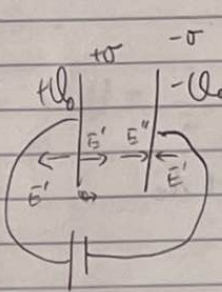 +σ -σ
+Q₀ -Q₀
E' E" E'
E'